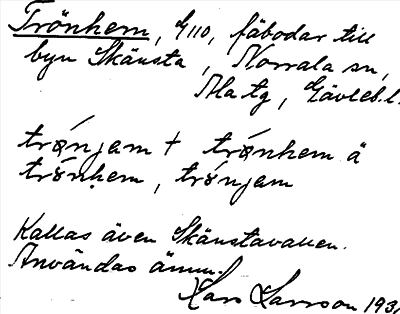 Trönhem, G110, fäbodar till
byn Skänsta, Norrala sn,
Ala tg, Gävleb.l.
trǿnjam + trǿnhem å
trǿnhem, trǿnjam
Kallas även Skänstavallen.
Användas ännu.
Hans Larsson 193